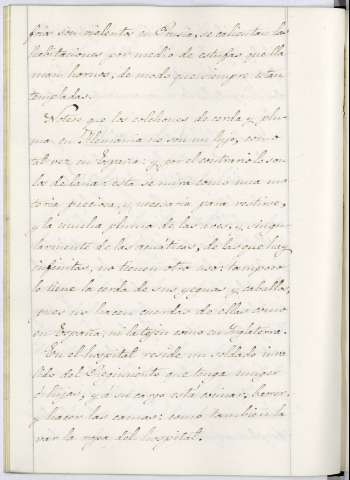 frios son violentos en Prusia, se calientan las
habitaciones por medio de estufas que lla
man hornos, de modo que siempre estan
templadas.
Notese que los colchones de cerda y plu
ma en Alemania no son un lujo, como
tal vez en España: y por el contrario lo son
los de lana: esta se mira como una ma
teria preciosa, y necesaria para vestirse,
y la mucha pluma de las aves, y singu
larmente de las acuáticas, de las que hay
infinitas, no tienen otro uso: tampoco
lo tiene la cerda de sus yeguas, y caballos,
pues no hacen cuerdas de ellas como
en España, ni la tejen como en Ynglaterra.
En el hospital reside un soldado inva
lido del Regimiento que tenga muger
é hijos, y á su cargo está cocinar, barrer,
y hacer las camas: como tambien la
var la ropa del hospital.